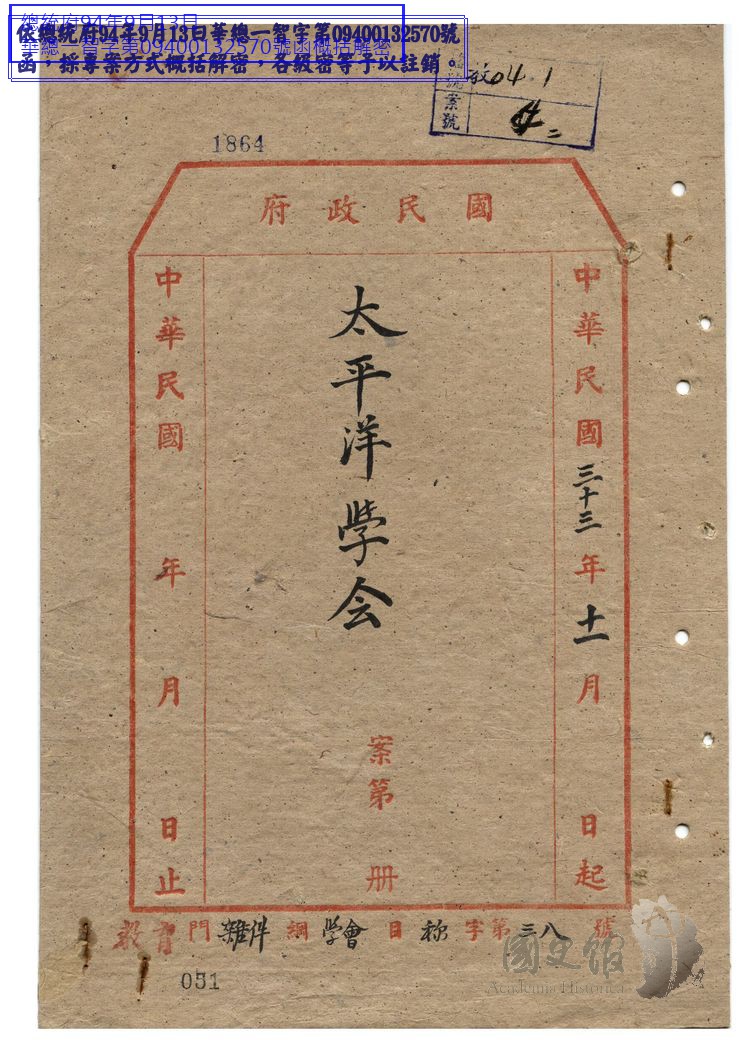 總統府94年9月13日
華總一智字第09400132570號函概括解密
依總統府94年9月13日華總一智字第09400132570號
函，採專案方式概括解密，各級密等予以註銷。
號 04.1
案號 二
1864
國民政府
中華民國三十三年十一月 日起
太平洋學会
案第 册
中華民國 年 月 日止
教育門雜件綱學會目称字第三八號
051
國史館
Academia Historica